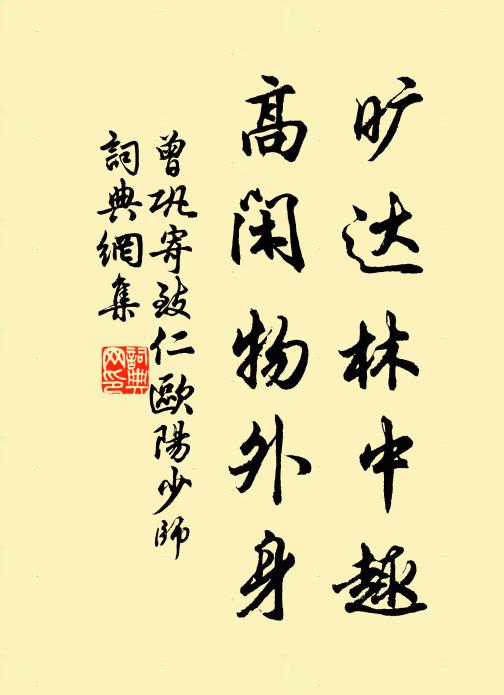 旷达林中趣
高闲物外身
曾巩寄致仁欧陽少師
詞典網集
詞典网印